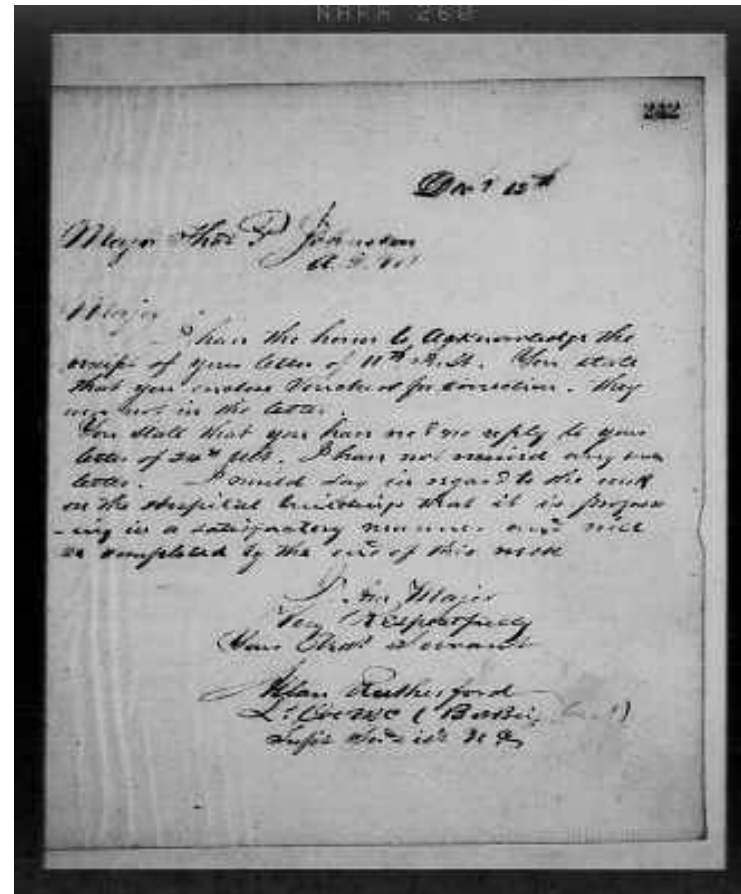 NARA 268
232
Dec 12th
Major Thos P Johnston
A.Q.M
Major
I have the honor to acknowledge the
receipt of your letter of 11th Inst. You state
that you enclose Vouchers for correction. they
were not in the letter.
You state that you have recd no reply to your
letter of 24th Ult. I have not received any such
letter. I would say in regard to the work
on the Hospital buildings that it is progress
-ing in a satisfactory manner and will
be completed by the end of this week
I Am Major
Very Respectfully
Your Obdt Servant
Allan Rutherford
Lt Col